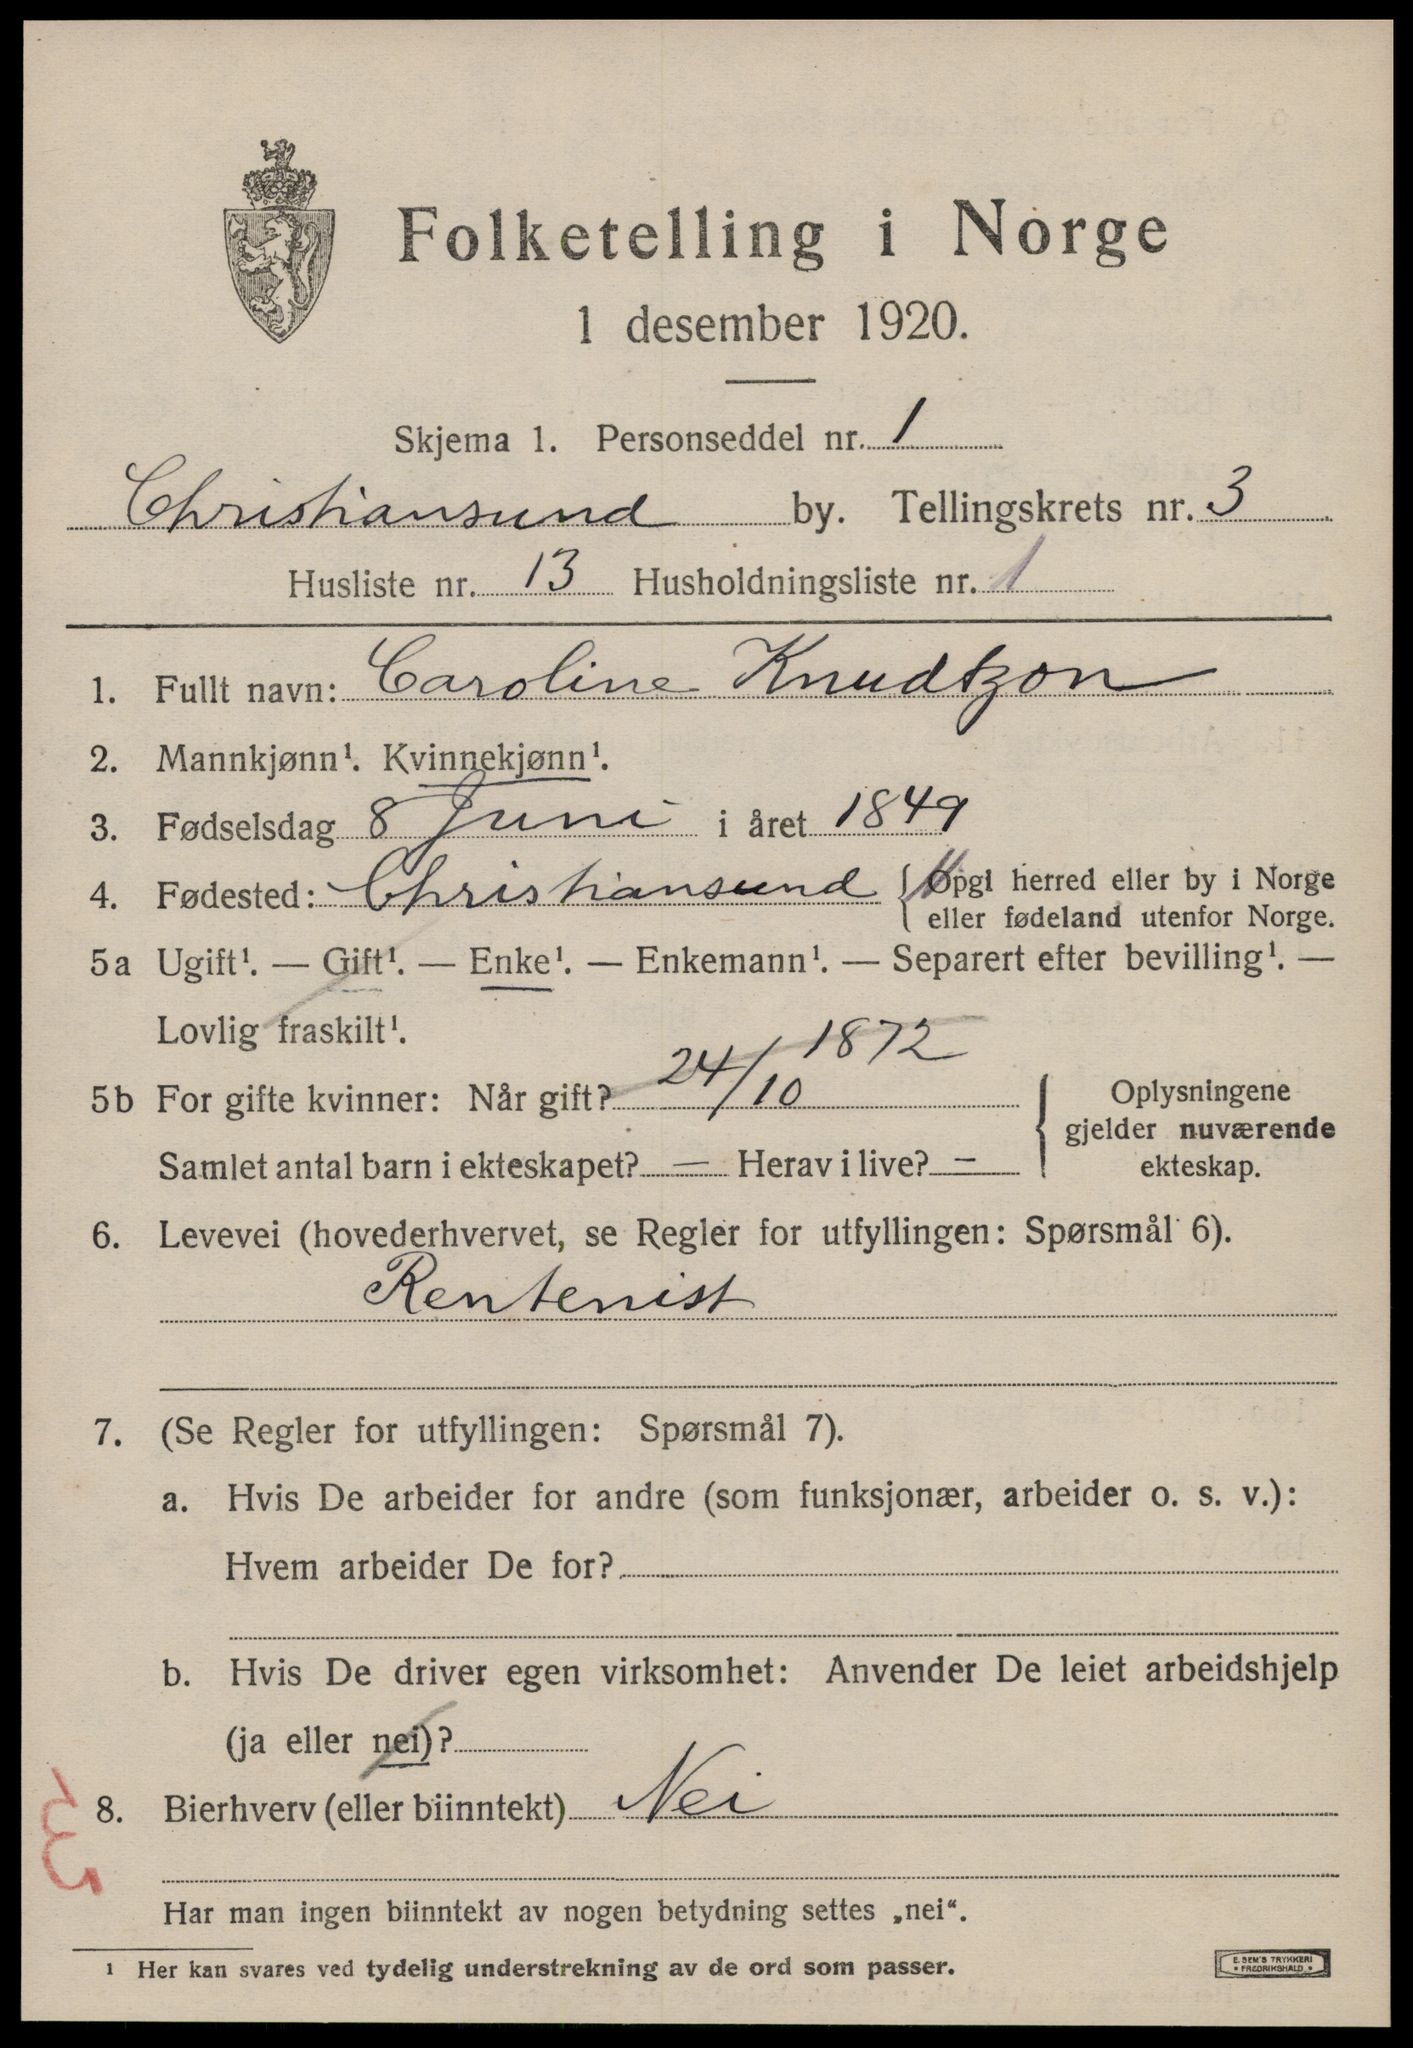 Folketelling i Norge
1 desember 1920.
Skjema 1. Personseddel nr. 1
Christiansund by. Tellingskrets nr. 3
Husliste nr. 13 Husholdningsliste nr. 1
1. Fullt navn: Caroline Knudtzon
2. Mannkjønn¹. Kvinnekjønn¹.
3. Fødselsdag 8 Juni i året 1849
4. Fødested: Christiansund { Opgi herred eller by i Norge
eller fødeland utenfor Norge.
5a Ugift¹. — Gift¹. — Enke¹. — Enkemann¹. — Separert efter bevilling¹. —
Lovlig fraskilt¹.
5b For gifte kvinner: Når gift? 24/10 1872 { Oplysningene
gjelder nuværende
Samlet antal barn i ekteskapet? — Herav i live? — ekteskap.
6. Levevei (hovederhvervet, se Regler for utfyllingen: Spørsmål 6).
Rentenist
7. (Se Regler for utfyllingen: Spørsmål 7).
a. Hvis De arbeider for andre (som funksjonær, arbeider o. s. v.):
Hvem arbeider De for?
b. Hvis De driver egen virksomhet: Anvender De leiet arbeidshjelp
(ja eller nei)?
8. Bierhverv (eller biinntekt) Nei
Har man ingen biinntekt av nogen betydning settes „nei“.
¹ Her kan svares ved tydelig understrekning av de ord som passer.
E. SEM'S TRYKKERI
• FREDRIKSHALD •